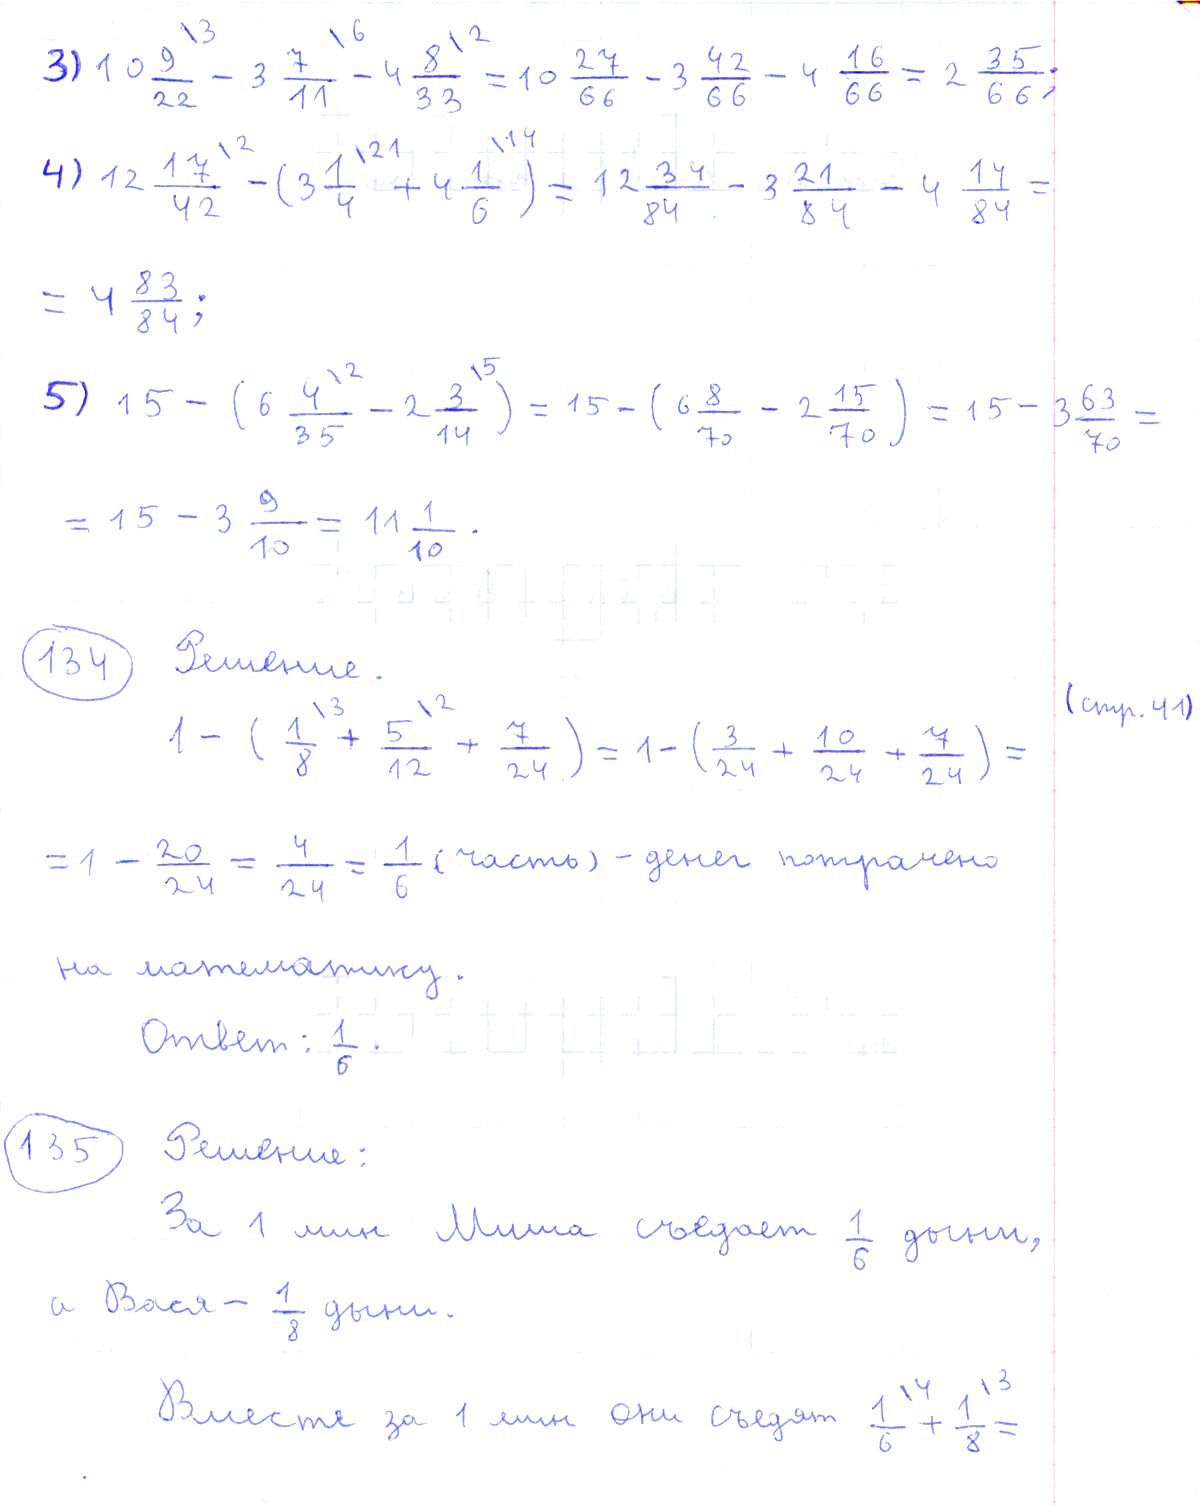 3) 10 9/22 \3 - 3 7/11 \6 - 4 8/33 \2 = 10 27/66 - 3 42/66 - 4 16/66 = 2 35/66;
4) 12 17/42 \2 - (3 1/4 \21 + 4 1/6 \14) = 12 34/84 - 3 21/84 - 4 14/84 =
= 4 83/84;
5) 15 - (6 4/35 \2 - 2 3/14 \5) = 15 - (6 8/70 - 2 15/70) = 15 - 3 63/70 =
= 15 - 3 9/10 = 11 1/10.
134 Решение.
(стр. 41)
1 - (1/8 \3 + 5/12 \2 + 7/24) = 1 - (3/24 + 10/24 + 7/24) =
= 1 - 20/24 = 4/24 = 1/6 (часть) - денег потрачено
на математику.
Ответ: 1/6.
135 Решение:
За 1 мин Миша съедает 1/6 дыни,
а Вася - 1/8 дыни.
Вместе за 1 мин они съедят 1/6 \4 + 1/8 \3 =